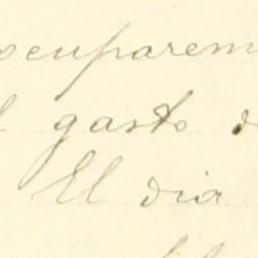 ocuparem
gasto d
El dia